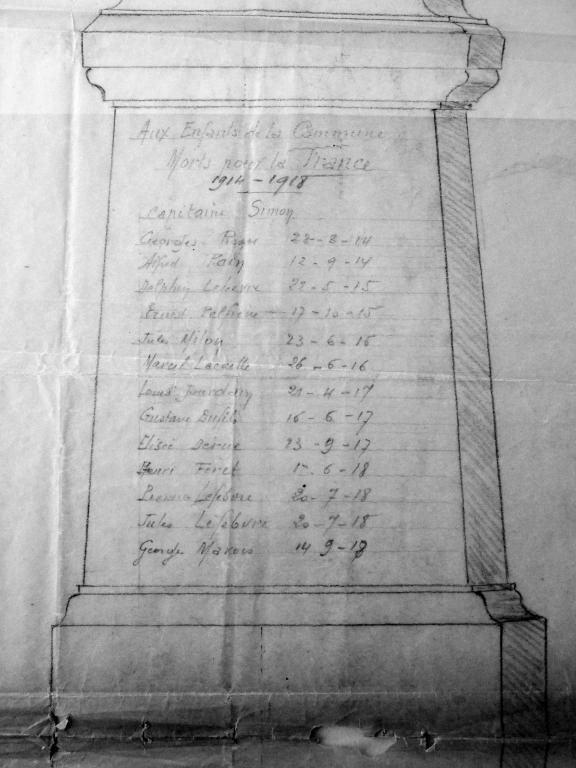 Aux Enfants de la Commune
Morts pour la France
1914 - 1918
Capitaine Simon
Georges 22 - 8 - 14
Alfred Pain 12 - 9 - 14
Delphin Lefebvre - 5 - 15
Ernest 17 - 10 - 15
Jules Milon 23 - 6 - 16
Marcel 26 - 6 - 16
Louis Jourdain 21 - 4 - 17
Gustave 16 - 6 - 17
Elisée 23 - 9 - 17
Henri Féret - 6 - 18
Lefebvre 20 - 7 - 18
Jules Lefebvre 20 - 7 - 18
George 14 9 - 18